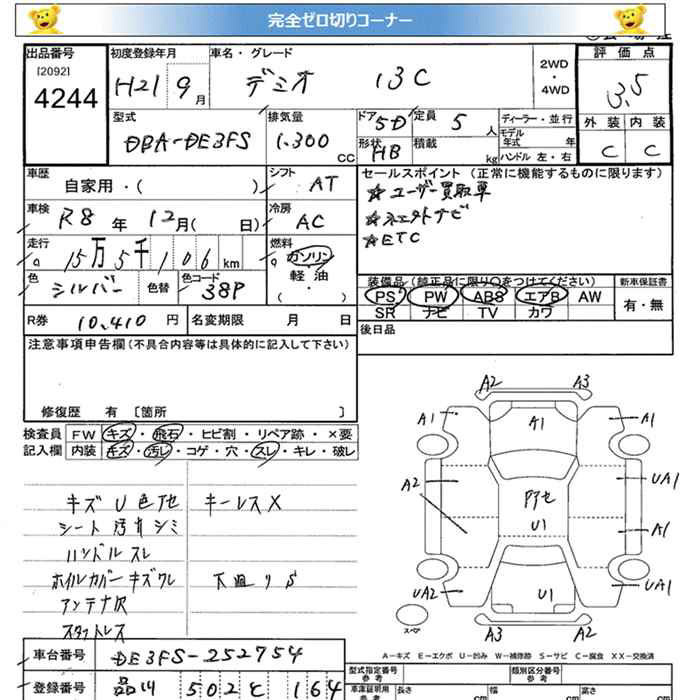 完全ゼロ切りコーナー
出品番号 初度登録年月 車名・グレード 評価点
[2092]
4244
H21 9月 デミオ 13C 2WD・4WD 3.5
型式 排気量 ドア 定員 ディーラー・並行 外装 内装
DBA-DE3FS 1.300 CC 5D 5人 モデル年式 年 C C
形状 HB 積載 kg ハンドル 左・右
車歴 自家用・( ) シフト AT セールスポイント (正常に機能するものに限ります)
☆ユーザー買取車
車検 R8年 12月( 日) 冷房 AC
☆ETC
走行 15万5千106km 燃料 ガソリン 軽油 ( ・ )
色 シルバー 色替 色コード 38P
装備品 (純正品に限り〇をつけてください) 新車保証書
PS PW ABS エアB AW 有・無
SR ナビ TV カワ
R券 10,410円 名変期限 月 日 後日品
注意事項申告欄(不具合内容等は具体的に記入して下さい)
修復歴 有 [箇所 ]
検査員 FW キズ・飛石・ヒビ割・リペア跡・×要
記入欄 内装 キズ・汚レ・コゲ・穴・スレ・キレ・破レ
キズ U 色アセ キーレスX
シート 汚レ シミ
ハンドル スレ
ホイルカバー キズワレ 下廻りS
アンテナ欠
スタットレス
A2 A3
A1 A1 A1
A2 UA1
U1 A1
UA2 U1 UA1
スペア
A3 A2
A-キズ E-エクボ U-凹み W-補修跡 S-サビ C-腐食 XX-交換済
車台番号 DE3FS-252754
登録番号 品川 502 と 164
型式指定番号 参考 類別区分番号 参考
車庫証明用 参考 長さ cm 幅 cm 高さ cm